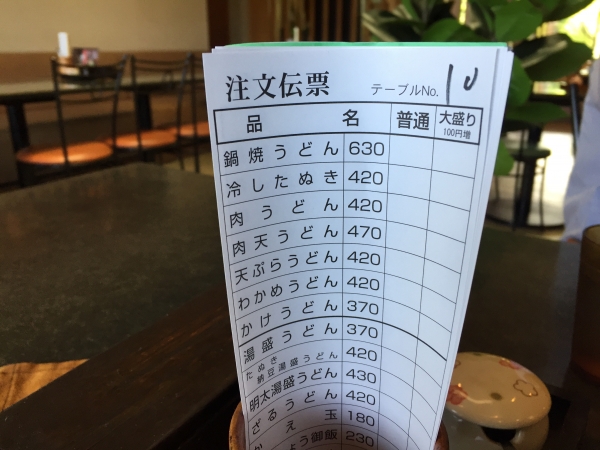 注文伝票 テーブルNo. 10
品名 普通 大盛り 100円増
鍋焼うどん 630
冷したぬき 420
肉うどん 420
肉天うどん 470
天ぷらうどん 420
わかめうどん 420
かけうどん 370
湯盛うどん 370
たぬき納豆湯盛うどん 420
明太湯盛うどん 430
ざるうどん 420
かえ玉 180
よう御飯 230